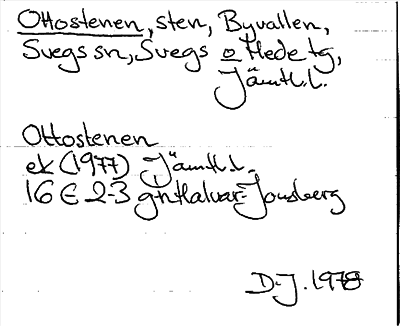 Ottostenen, sten, Byvallen,
Svegs sn, Svegs o Hede tg,
Jämtl.l.
Ottostenen
ek (1977) Jämtl.l.
16 E 2-3
D-J. 1978